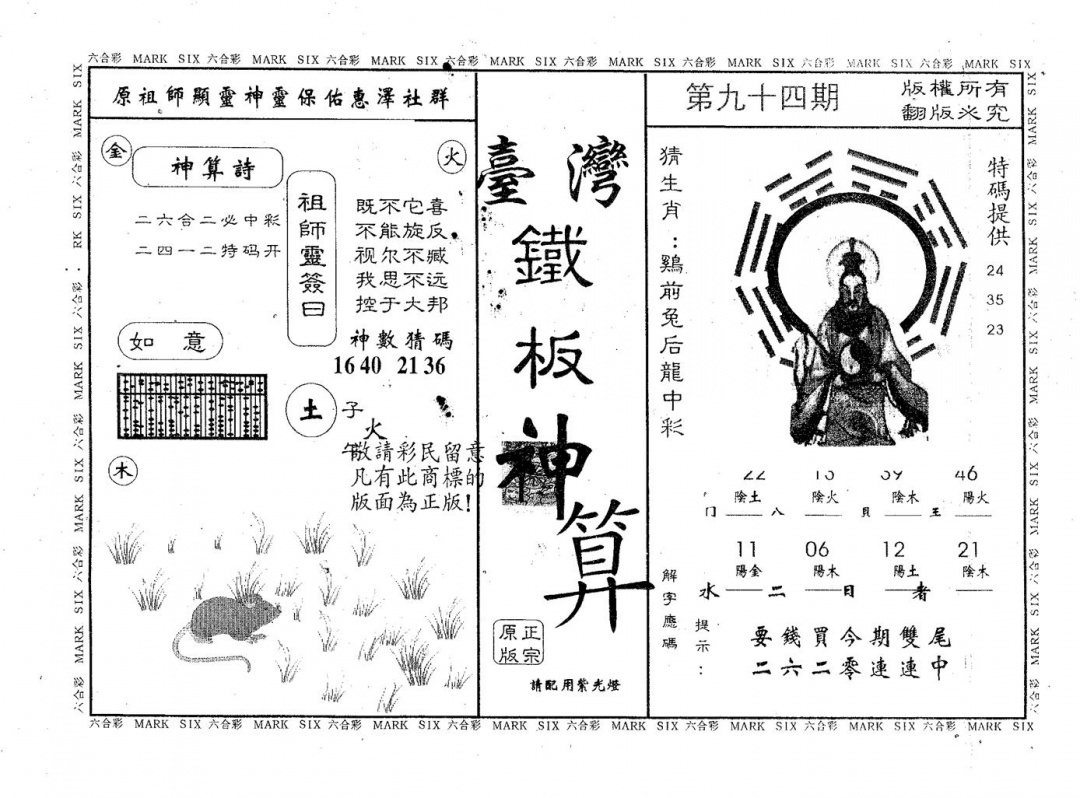 六合彩 MARK SIX 六合彩 MARK SIX 六合彩 MARK SIX 六合彩 MARK SIX 六合彩 MARK SIX 六合彩 MARK SIX 六合彩 MARK SIX 六合彩 MARK SIX
原祖師顯靈神靈保佑惠澤社群
金
火
神算詩
二六合二必中彩
二四一二特码开
祖師靈簽曰
既不它喜
不能旋反
视尔不臧
我思不远
控于大邦
神數猜碼
16 40 21 36
如意
土
子
火
午
木
敬請彩民留意
凡有此商標的
版面為正版!
臺灣
鐵
板
神
算
正宗
原版
請配用紫光燈
第九十四期
版權所有
翻版必究
猜生肖:鷄前兔后龍中彩
特碼提供
24
35
23
22 46
陰土 陰火 陰木 陽火
門 八 貝 王
11 06 12 21
陽金 陽木 陽土 陰木
水 二 日 者
解字應碼
提示:
要錢買今期雙尾
二六二零連連中
六合彩 MARK SIX 六合彩 MARK SIX 六合彩 MARK SIX 六合彩 MARK SIX 六合彩 MARK SIX 六合彩 MARK SIX 六合彩 MARK SIX 六合彩 MARK SIX